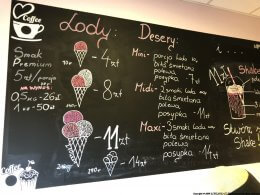 Coffee
Lody:
Smak
Premium
5zł/porcja
na wynos:
0,5kg-26zł
1kg-50zł
-4zł
-8zł
-11zł
-14zł
Desery:
Mini- porcja loda
bita śmietana
polewa
posypka -7zł
Midi- 2 smaki loda
bita śmietana
polewa
posypka -11zł
Maxi- 3 smaki loda
bita śmietana
polewa
posypka -14zł
Shake
Stwórz
Shake
Coffee